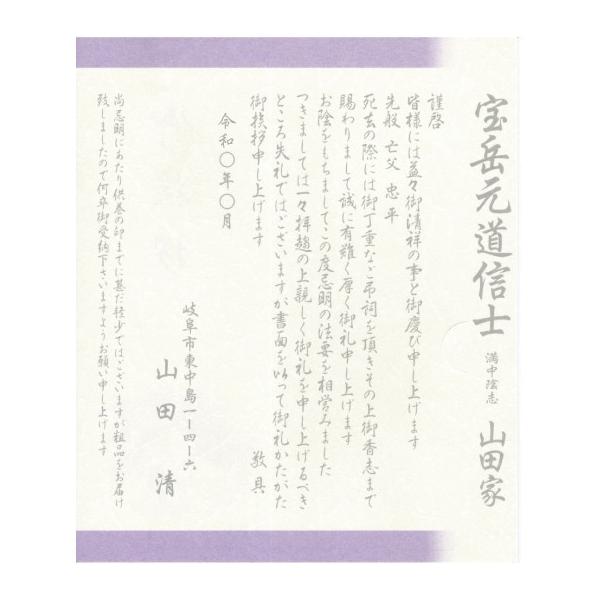 宝岳元道信士 満中陰志 山田家
謹啓
皆様には益々御清祥の事と御慶び申し上げます
先般 亡父 忠平
死去の際には御丁重なご弔詞を頂きその上御香志まで
賜わりまして誠に有難く厚く御礼申し上げます
お陰をもちましてこの度忌明の法要を相営みました
つきましては一々拝趨の上親しく御礼を申し上げるべき
ところ失礼ではございますが書面を以って御礼かたがた
御挨拶申し上げます
敬具
令和〇年〇月
岐阜市東中島一ー四ー六
山田 清
尚忌明にあたり供養の印までに甚だ軽少ではございますが粗品をお届け
致しましたので何卒御受納下さいますようお願い申し上げます